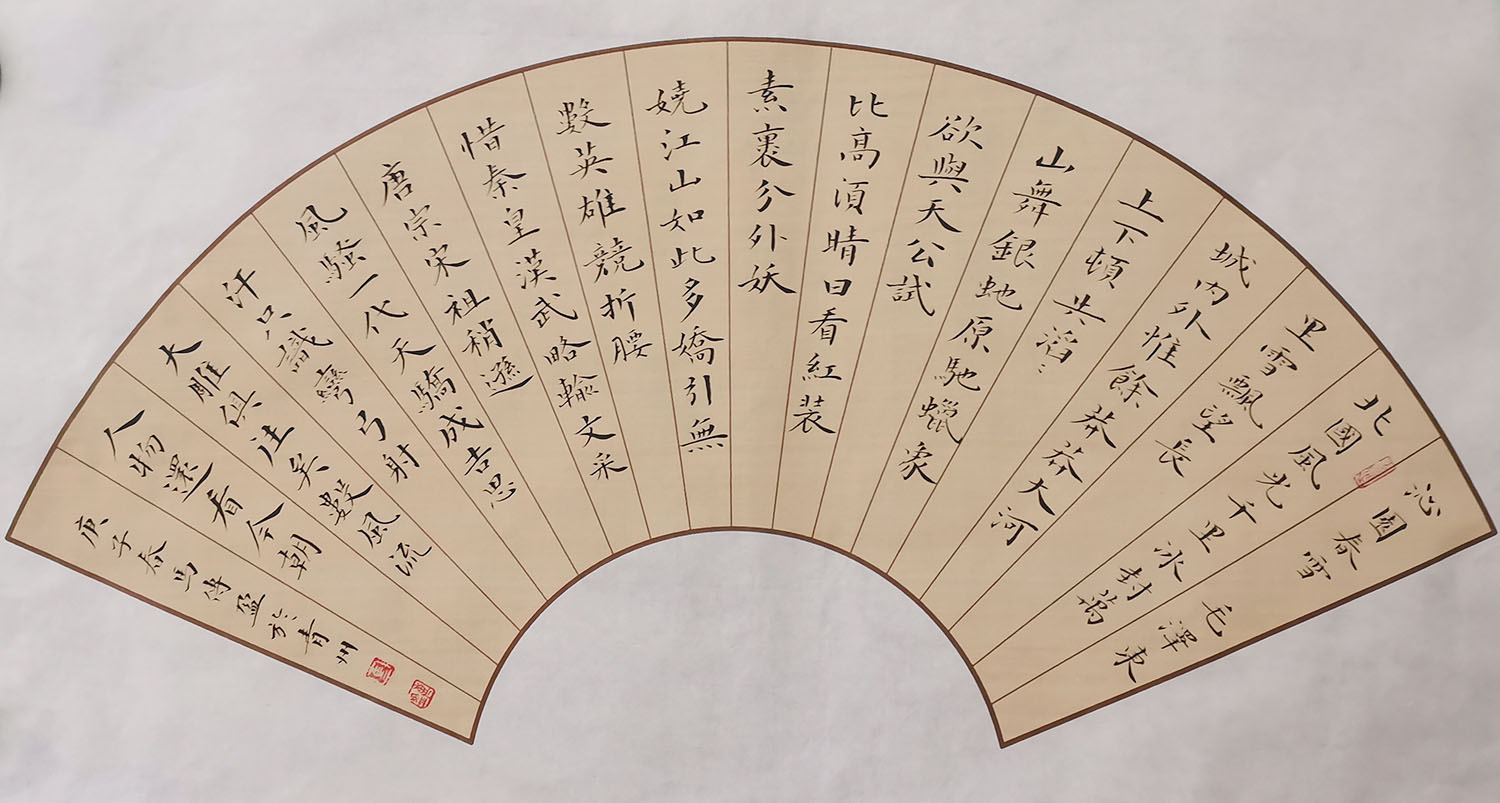 沁園春雪 毛澤東
北國風光千里冰封萬
里雪飄望長
城内外惟餘莽莽大河
上下頓失滔〻
山舞銀虵原馳蠟象
欲與天公試
比高須晴日看紅装
素裹分外妖
嬈江山如此多嬌引無
數英雄競折腰
惜秦皇漢武略輸文采
唐宗宋祖稍遜
風騷一代天驕成吉思
汗只識彎弓射
大雕俱往矣數風流
人物還看今朝
庚子春馬傳盈於青州